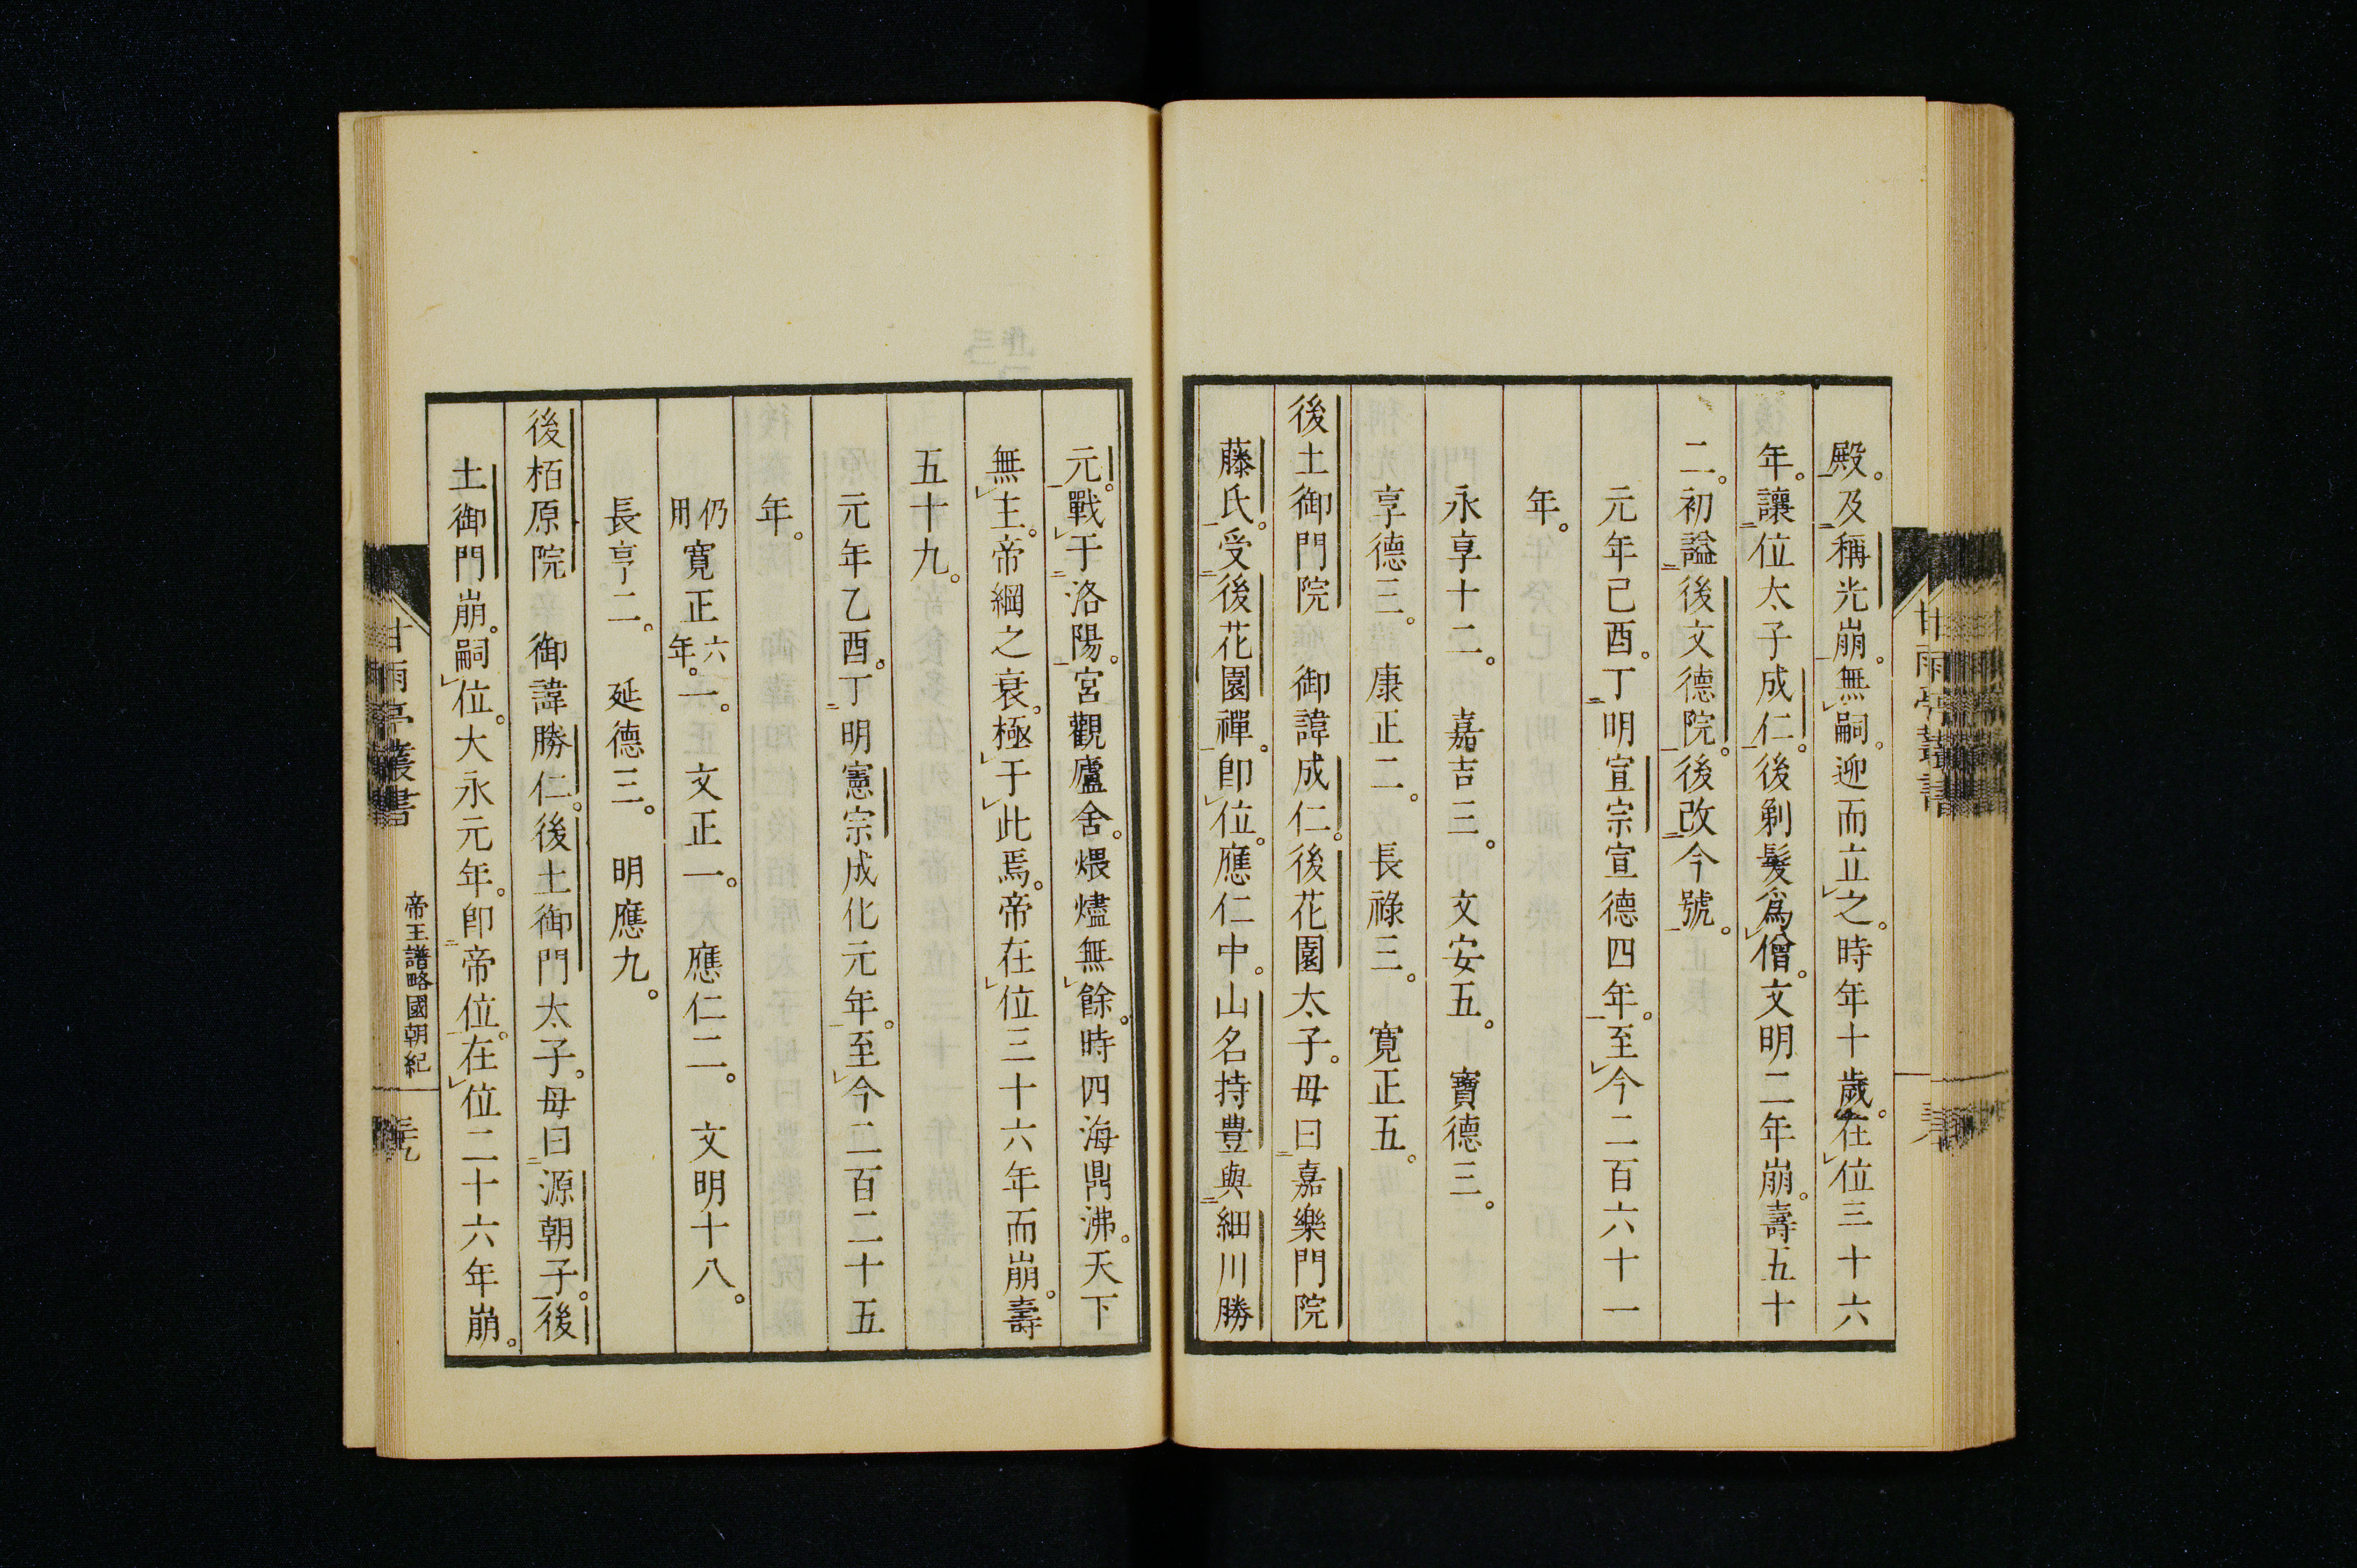 殿。及稱光崩。無嗣。迎而立之。時年十歲。在位三十六
年。讓位太子成仁。後剃髮爲僧。文明二年崩。壽五十
二。初謚後文德院。後改今號。
元年己酉。丁明宣宗宣德四年。至今二百六十一
年。
永享十二。 嘉吉三。 文安五。 寶德三。
享德三。 康正二。 長祿三。 寛正五。
後土御門院 御諱成仁。後花園太子。母曰嘉樂門院
藤氏。受後花園禪。卽位。應仁中。山名持豊與細川勝
元。戰于洛陽。宮觀廬舍。煨燼無餘。時四海鼎沸。天下
無主。帝綱之衰。極于此焉。帝在位三十六年而崩。壽
五十九。
元年乙酉。丁明憲宗成化元年。至今二百二十五
年。
仍用寛正六年。一。 文正一。 應仁二。 文明十八。
長亨二。 延德三。 明應九。
後栢原院 御諱勝仁。後土御門太子。母曰源朝子。後
土御門崩。嗣位。大永元年。卽帝位。在位二十六年崩。
甘雨亭叢書
帝王譜略國朝紀
甘雨亭叢書